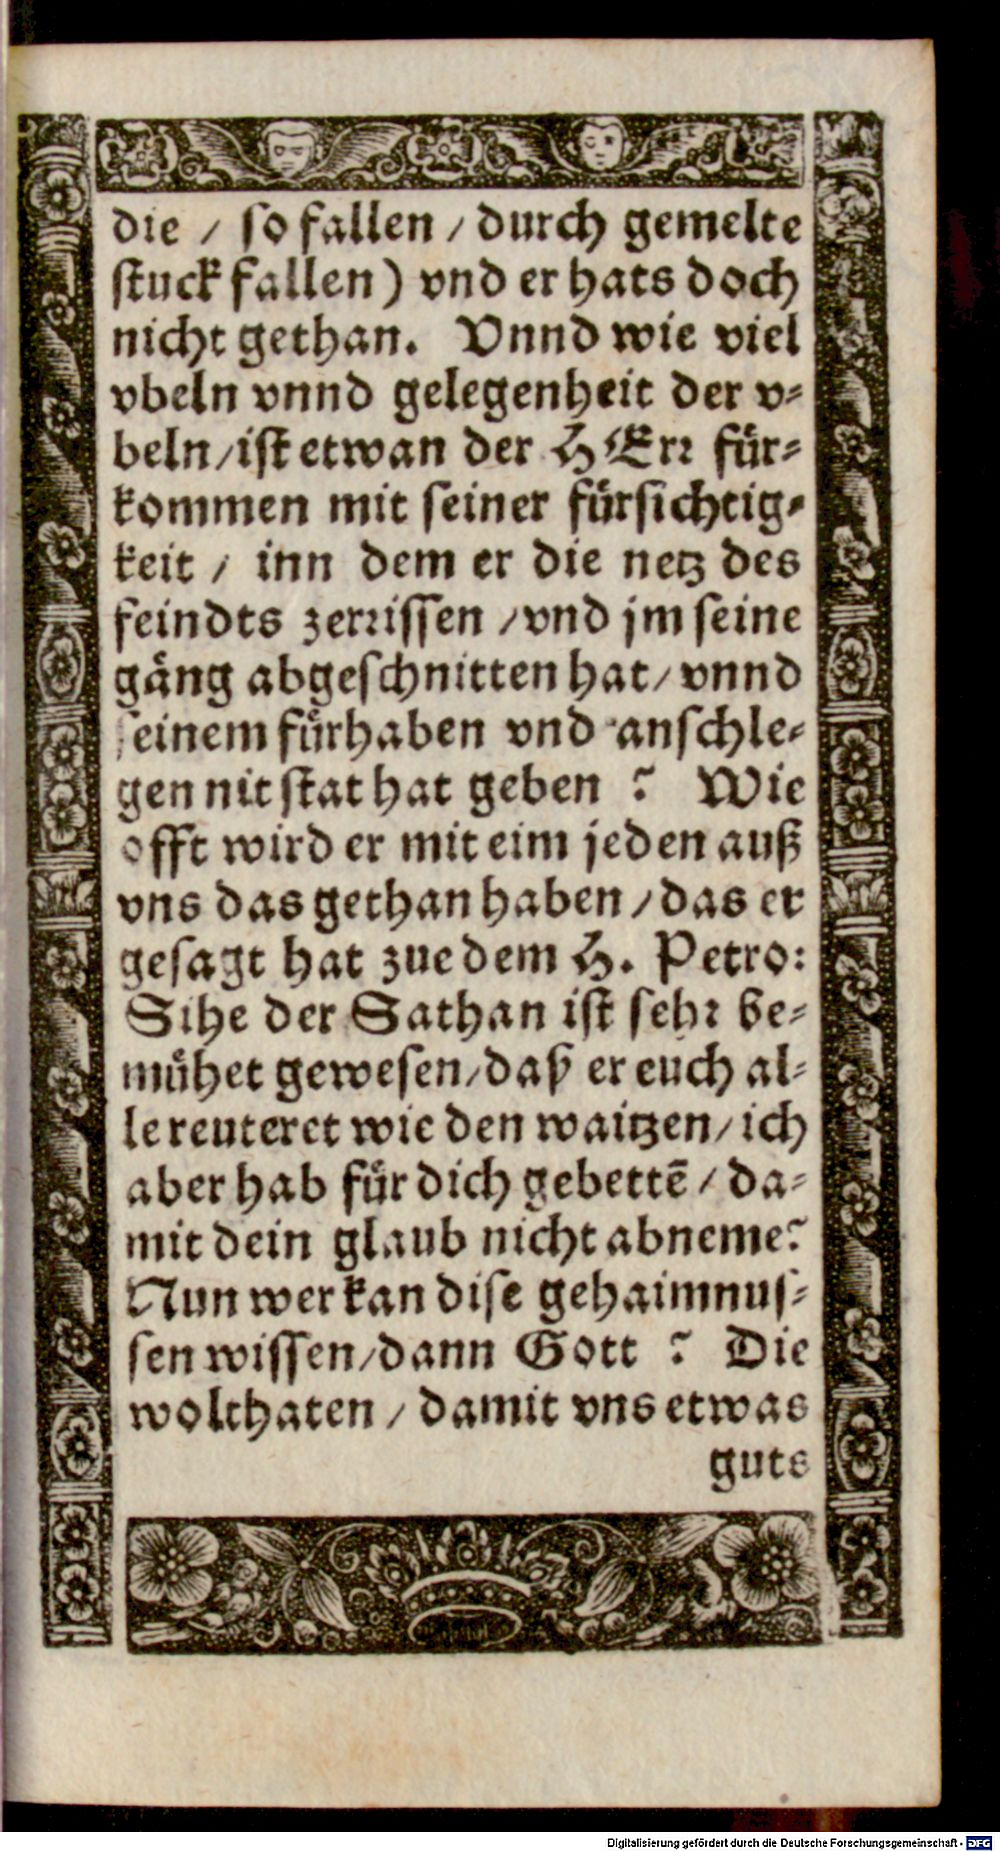 die / so fallen / durch gemelte
stuck fallen) vnd er hats doch
nicht gethan. Vnnd wie viel
vbeln vnnd gelegenheit der v-
beln / ist etwan der HErr fuͤr-
kommen mit seiner fuͤrsichtig-
keit / inn dem er die netz des
feindts zerrissen / vnd jm seine
gaͤng abgeschnitten hat / vnnd
seinem fuͤrhaben vnd anschle-
gen nit stat hat geben? Wie
offt wird er mit eim jeden auß
vns das gethan haben / das er
gesagt hat zue dem H. Petro:
Sihe der Sathan ist sehr be-
muͤhet gewesen / daß er euch al-
le reuteret wie den waitzen / ich
aber hab fuͤr dich gebettē / da-
mit dein glaub nicht abneme?
Nun wer kan dise gehaimnus-
sen wissen / dann Gott? Die
wolthaten / damit vns etwas
guts
Digitalisierung gefördert durch die Deutsche Forschungsgemeinschaft - DFG